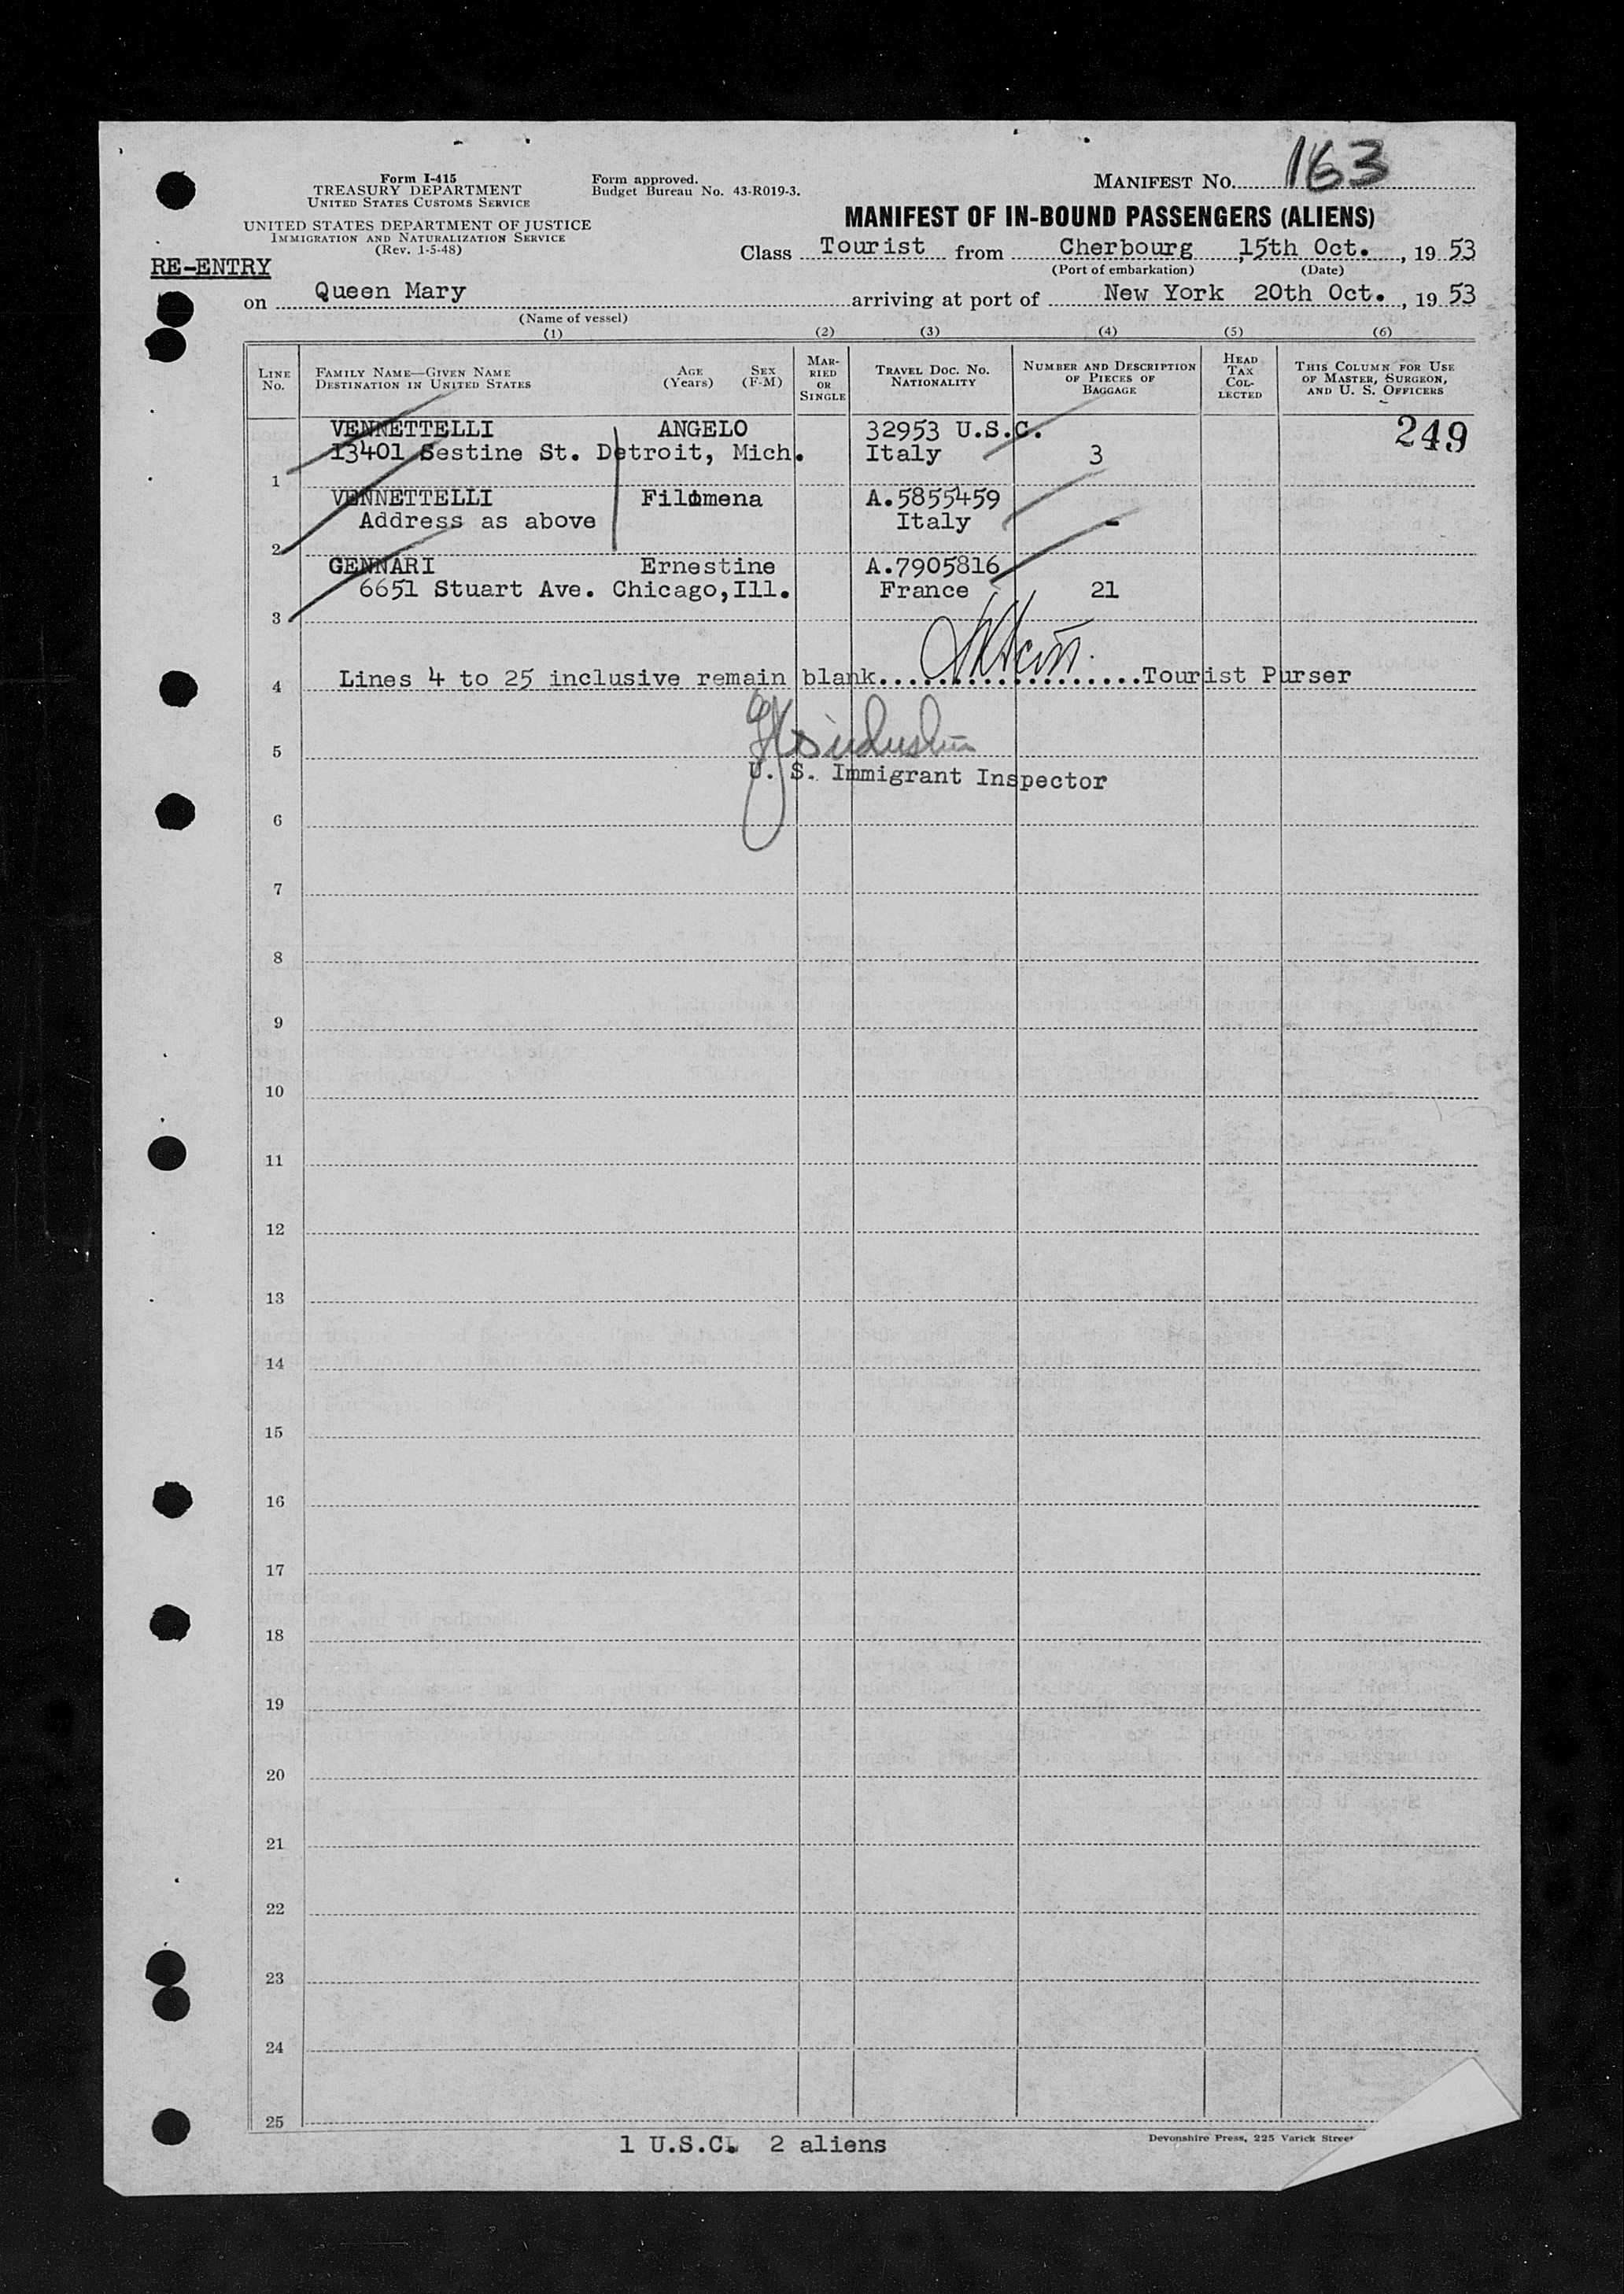 163
Form I-415
TREASURY DEPARTMENT
UNITED STATES CUSTOMS SERVICE
Form approved.
Budget Bureau No. 43-R019-3.
MANIFEST NO.
UNITED STATES DEPARTMENT OF JUSTICE
IMMIGRATION AND NATURALIZATION SERVICE
(Rev. 1-5-48)
MANIFEST OF IN-BOUND PASSENGERS (ALIENS)
RE-ENTRY
Class Tourist from Cherbourg, 15th Oct., 19 53
(Port of embarkation) (Date)
on Queen Mary arriving at port of New York 20th Oct., 19 53
(Name of vessel)
(1) (2) (3) (4) (5) (6)
LINE NO.
FAMILY NAME—GIVEN NAME
DESTINATION IN UNITED STATES
AGE (Years)
SEX (F-M)
MARRIED OR SINGLE
TRAVEL DOC. NO. NATIONALITY
NUMBER AND DESCRIPTION OF PIECES OF BAGGAGE
HEAD TAX COLLECTED
THIS COLUMN FOR USE OF MASTER, SURGEON, AND U. S. OFFICERS
VENNETTELLI ANGELO 32953 U.S.C. 249
13401 Sestine St. Detroit, Mich. Italy 3
1
VENNETTELLI Filomena A.5855459
Address as above Italy -
2
GENNARI Ernestine A.7905816
6651 Stuart Ave. Chicago,Ill. France 21
3
4 Lines 4 to 25 inclusive remain blank....................Tourist Purser
5
U. S. Immigrant Inspector
6
7
8
9
10
11
12
13
14
15
16
17
18
19
20
21
22
23
24
25
1 U.S.C. 2 aliens
Devonshire Press, 225 Varick Street